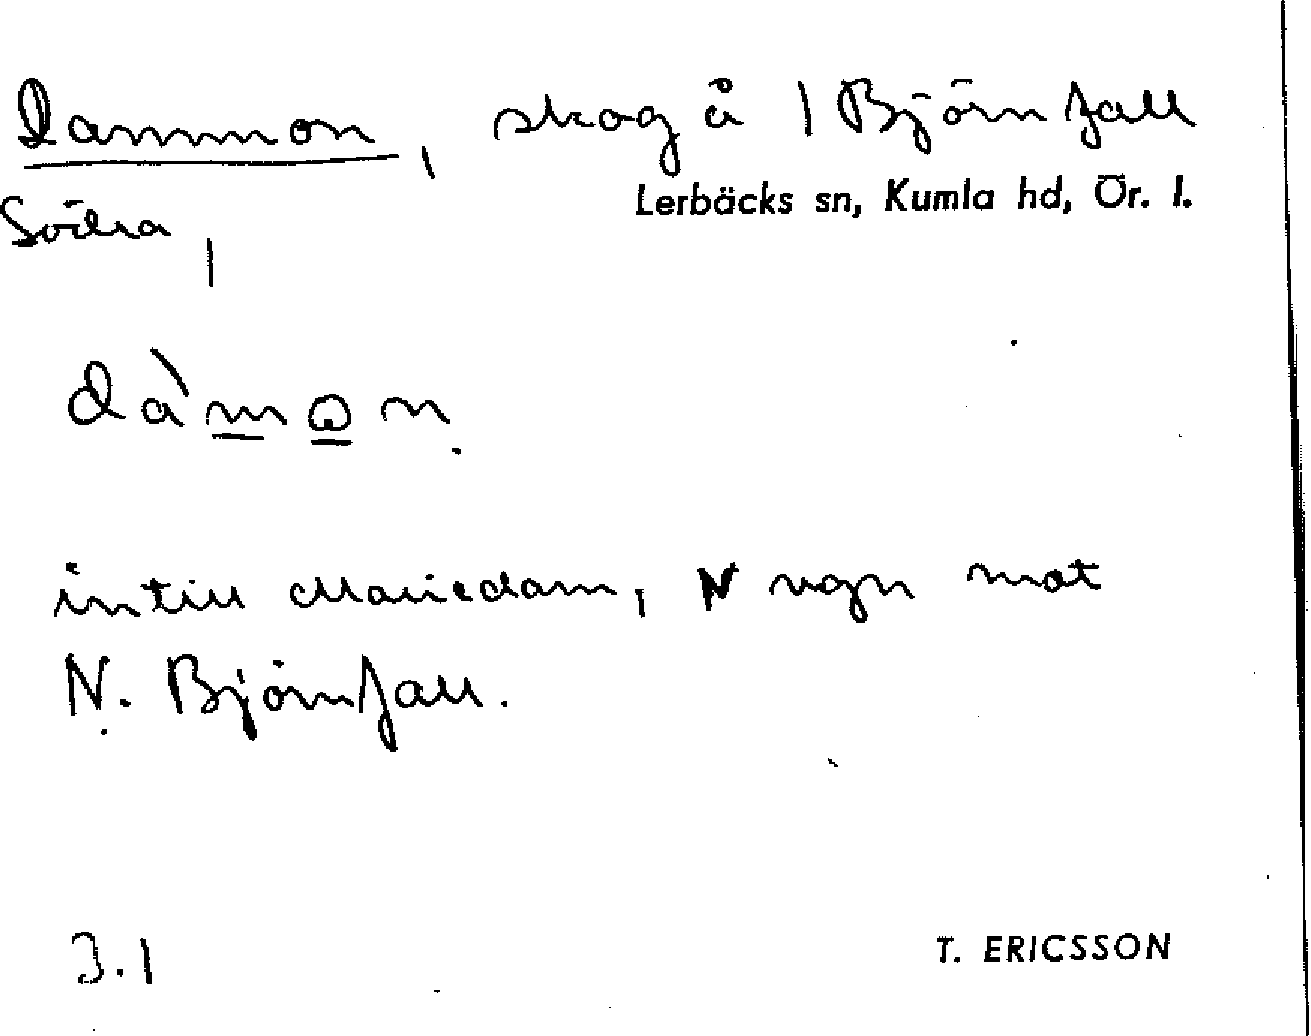 Dammon, skog å 1 Björnfall
Lerbäcks sn, Kumla hd, Ör. l.
Södra,
dàmɷn.
intill Mariedam, N vgn mot
N. Björnfall.
3.1
T. ERICSSON